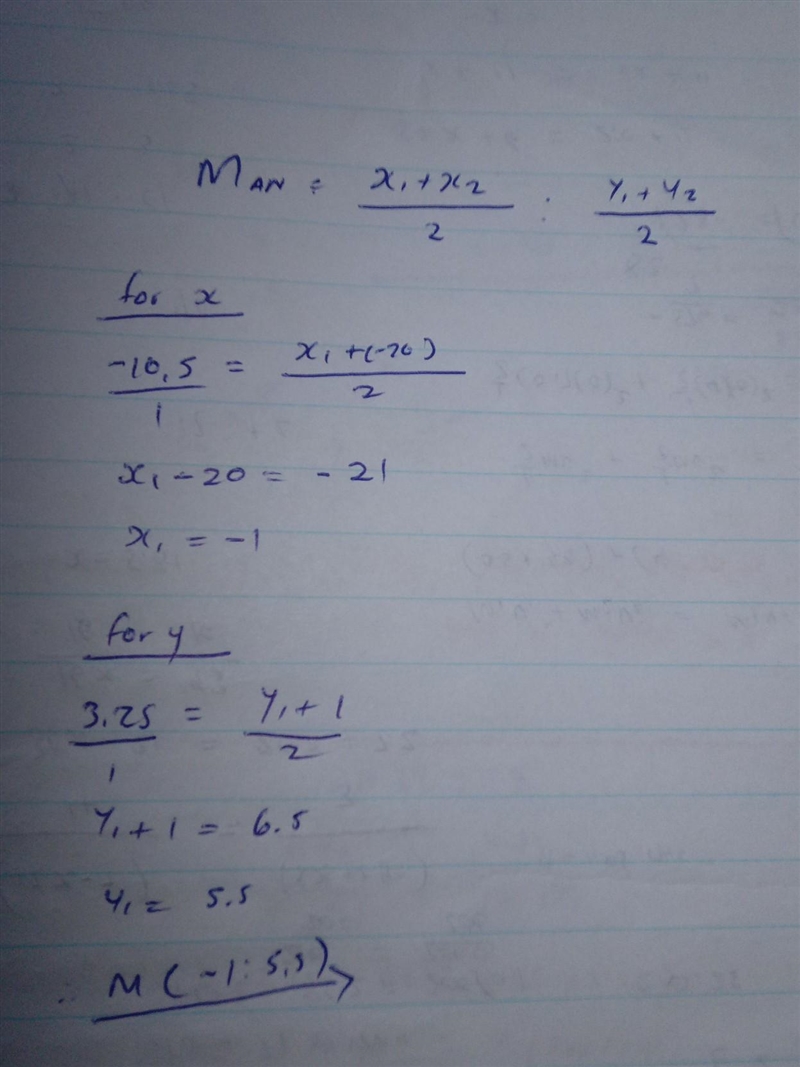 M AN = x₁ + x₂ / 2 : y₁ + y₂ / 2
for x
-10,5 / 1 = x₁ + (-20) / 2
x₁ - 20 = - 21
x₁ = -1
for y
3.25 / 1 = y₁ + 1 / 2
y₁ + 1 = 6.5
y₁ = 5.5
∴ M ( -1 : 5,5 )